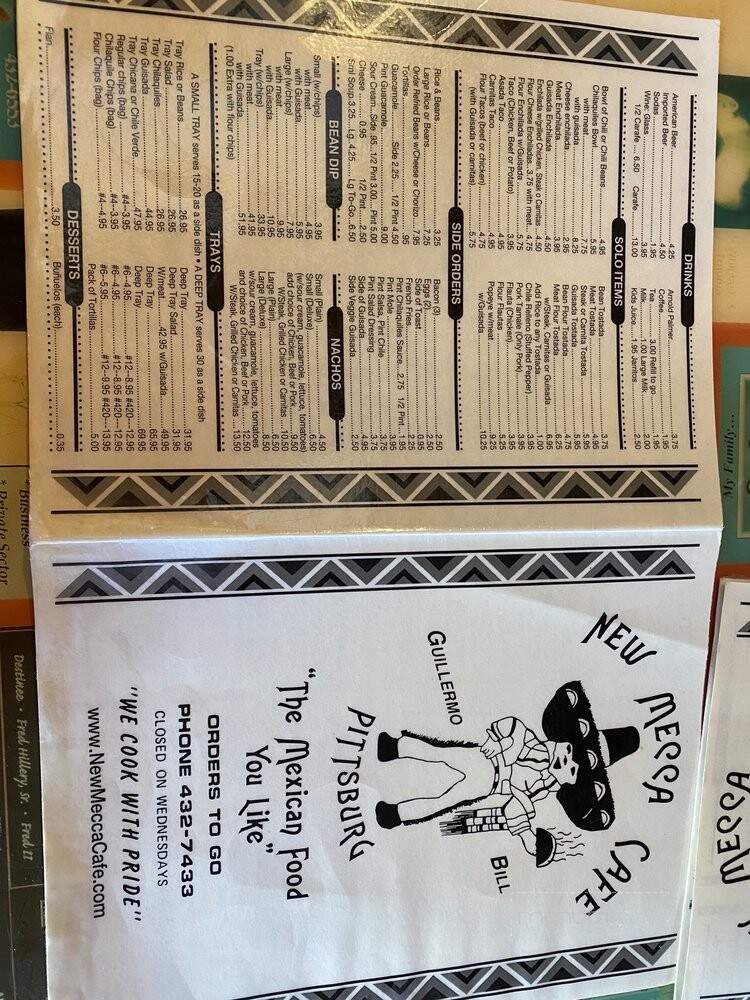 DRINKS
American Beer 4.25
Imported Beer 4.50
Sodas 1.95
Wine: Glass 3.95
1/2 Carafe 6.50 Carafe 13.00
Arnold Palmer 3.75
Coffee 1.95
Tea 3.00 Refill to go 1.95
Milk 1.00 Large Milk 2.00
Kids Juice 1.95 Jarritos 2.50
SOLO ITEMS
Bowl of Chili or Chili Beans 4.95
Chilaquiles Bowl 5.95
with meat 7.75
with guisada 8.25
Cheese enchilada 2.95
Meat Enchilada 3.95
Guisada Enchilada 4.50
Enchilada w/grilled Chicken, Steak or Carnitas 4.50
Flour Cheese Enchiladas 3.75 with meat 4.75
Flour Enchilada w/Guisada 5.75
Taco (Chicken, Beef or Potato) 3.95
Asada Taco 4.95
Carnitas Taco 4.95
Flour Tacos (beef or chicken) 4.75
(with Guisada or carnitas) 5.75
Bean Tostada 3.75
Meat Tostada 4.95
Steak or Carnita Tostada 5.95
Guisada Tostada 5.95
Bean Flour Tostada 4.75
Meat Flour Tostada 6.25
w/Steak, Carnitas or Guisada 6.95
Add Rice to any Tostada 1.00
Chile Relleno (Stuffed Pepper) 4.95
Pork Tamale (Only Pork) 3.95
Flauta (Chicken) 3.95
Flour Flautas 5.25
Popeye w/meat 9.25
w/Guisada 10.25
SIDE ORDERS
Rice & Beans 3.25
Large Rice or Beans 7.25
Order Refried Beans w/Cheese or Chorizo 7.95
Tortillas .95
Guacamole Side 2.25 1/2 Pint 4.50
Pint Guacamole 9.00
Sour Cream Side .95 1/2 Pint 3.00 Pint 5.00
Cheese 0.95 1/2 Pint 2.50
Sml Soup 3.25 Lg 4.25 Lg To-Go 6.50
Bacon (3) 2.50
Eggs (2) 2.50
Side of Toast 0.95
French Fries 2.25
Pint Chilaquiles Sauce 2.75 1/2 Pint 1.95
Pint Mole 3.95
Pint Salsa, Pint Chile 3.75
Pint Salad Dressing 3.75
Side of Guisada 4.95
Side Veggie Guisada 2.50
BEAN DIP
Small (w/chips) 3.95
with meat 4.95
with Guisada 5.95
Large (w/chips) 7.95
with meat 9.95
with Guisada 10.95
Tray (w/chips) 33.95
with meat 41.95
with Guisada 51.95
(1.00 Extra with flour chips)
NACHOS
Small (Plain) 4.50
Small (Deluxe) 6.50
(w/sour cream, guacamole, lettuce, tomatoes
add choice of Chicken, Beef or Pork 9.50
W/Steak, Grilled Chicken or Carnitas 10.50
Large (Plain) 6.50
Large (Deluxe) 8.50
w/sour cream, guacamole, lettuce, tomatoes
and choice of Chicken, Beef or Pork 12.50
W/Steak, Grilled Chicken or Carnitas 13.50
TRAYS
A SMALL TRAY serves 15-20 as a side dish • A DEEP TRAY serves 30 as a side dish
Tray Rice or Beans 26.95
Tray Salad 26.95
Tray Chilaquiles 26.95
Tray Guisada 44.95
Tray Chicana or Chile Verde 47.95
Regular chips (bag) #4--3.95
Chilaquile Chips (bag) #4--3.95
Flour Chips (bag) #4--4.95
Deep Tray 31.95
Deep Tray Salad 31.95
W/meat 42.95 w/Guisada 49.95
Deep Tray 65.95
Deep Tray 69.95
#6--4.95 #12--8.95 #420--12.95
#6--4.95 #12--8.95 #420--12.95
#6--5.95 #12--9.95 #420--13.95
Pack of Tortillas 5.00
DESSERTS
Flan 3.50
Buñuelos (each) 0.35
NEW MECCA CAFE
GUILLERMO
BILL
PITTSBURG
"The Mexican Food
You Like"
ORDERS TO GO
PHONE 432-7433
CLOSED ON WEDNESDAYS
"WE COOK WITH PRIDE"
www.NewMeccaCafe.com
MECCA
My Family...
* Business
* Private Sector
Destinee • Fred Hillery, Sr. • Fred II